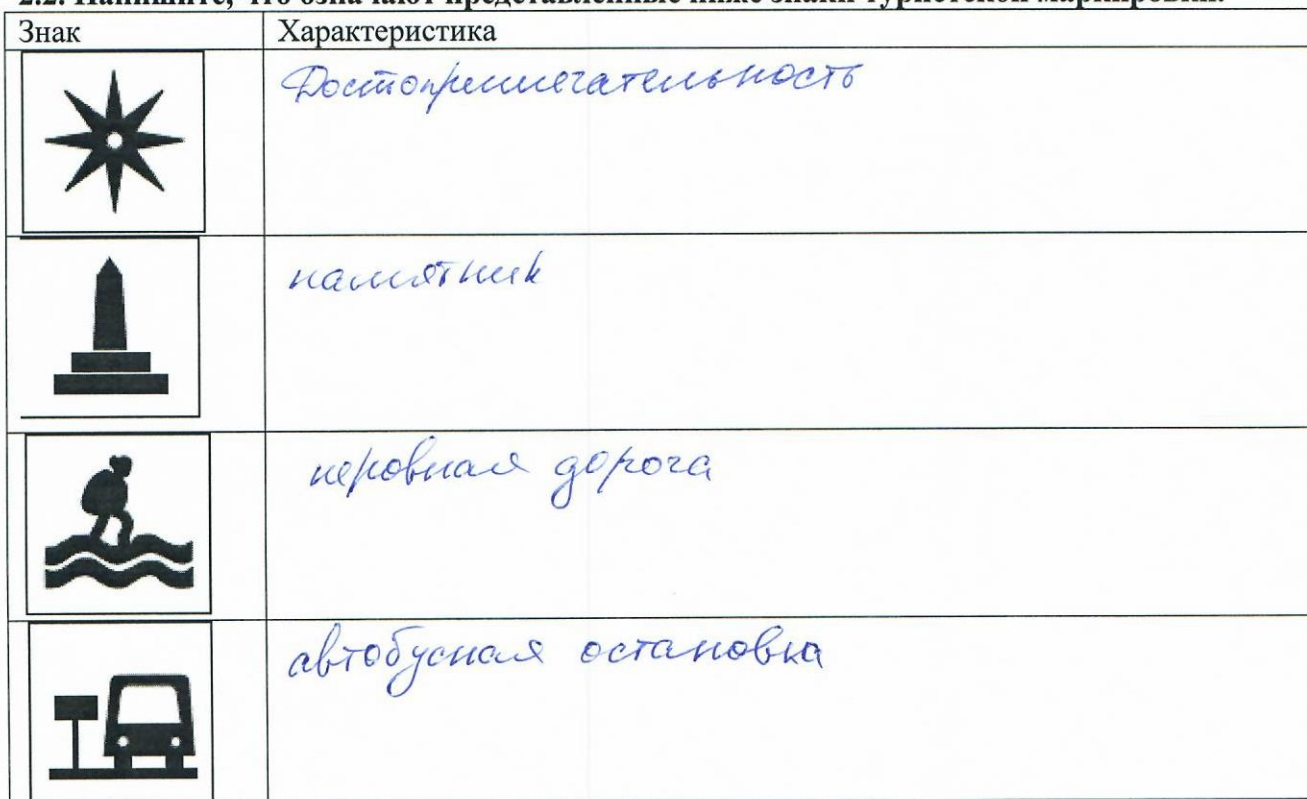 2.2. Напишите, что означают представленные ниже знаки туристской маркировки.
Знак Характеристика
Достопримечательность
памятник
неровная дорога
автобусная остановка